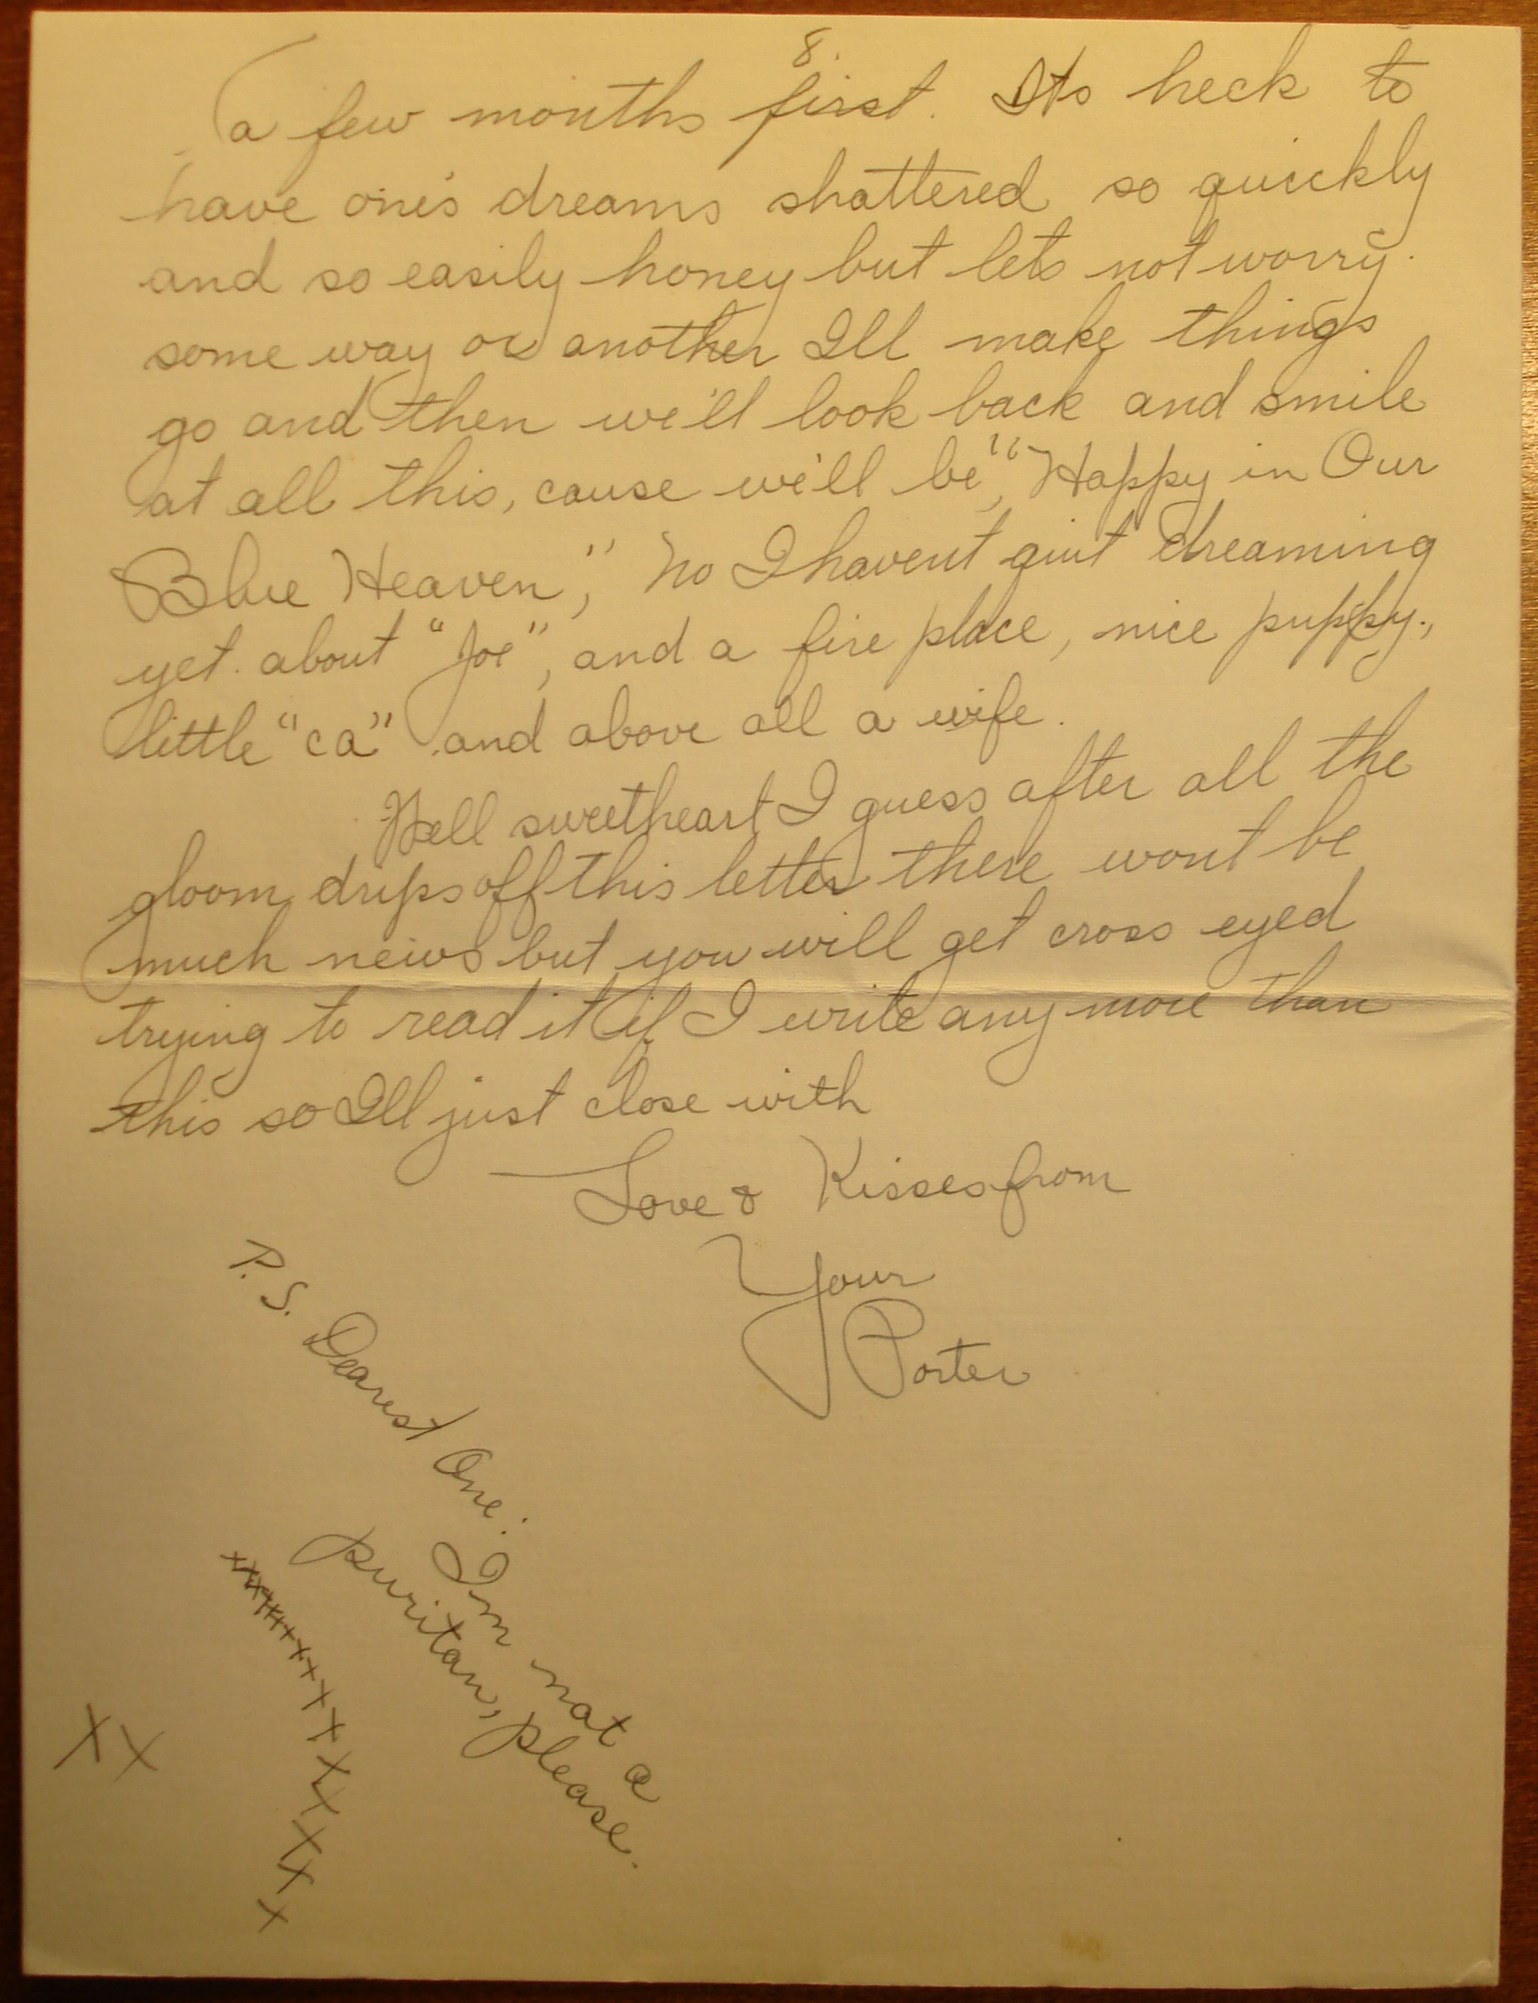 8.
a few months first. Its heck to
have one's dreams shattered so quickly
and so easily honey but lets not worry.
some way or another Ill make things
go and then we'll look back and smile
at all this, cause we'll be, "Happy in Our
Blue Heaven," No I havent quit dreaming
yet. about "Joe", and a fire place, nice puppy.,
little "ca" and above all a wife.
Well sweetheart I guess after all the
gloom drips off this letter there wont be
much news but you will get cross eyed
trying to read it if I write any more than
this so Ill just close with
Love & Kisses from
Your
Porter
P.S. Dearest One: Im not a
puritan, please.
xxxxxxxxxxxxxxxxxxx
XX